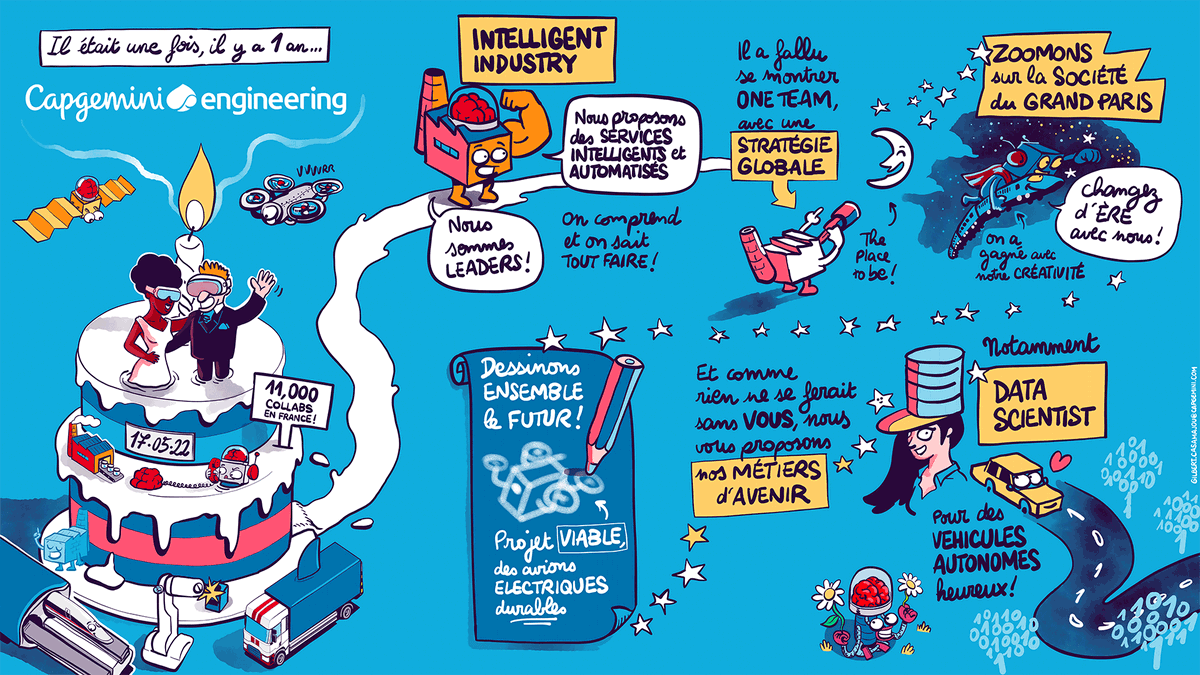 Il était une fois, il y a 1 an...
Capgemini engineering
VVVRR
11,000
COLLABS
EN FRANCE!
17.05.22
INTELLIGENT
INDUSTRY
Nous proposons
des SERVICES
INTELLIGENTS et
AUTOMATISÉS
Nous
sommes
LEADERS!
On comprend
et on sait
TOUT FAIRE!
Il a fallu
se montrer
ONE TEAM,
avec une
STRATÉGIE
GLOBALE
The
Place
to be!
ZOOMONS
sur la SOCIÉTÉ
du GRAND PARIS
Changez
d'ÈRE
avec nous!
on a
gagné avec
notre CRÉATIVITÉ
Dessinons
ENSEMBLE
le FUTUR!
Projet VIABLE,
des avions
ELECTRIQUES
durables
Et comme
rien ne se ferait
sans VOUS, nous
vous proposons
nos MÉTIERS
d'AVENIR
Notamment
DATA
SCIENTIST
Pour des
VEHICULES
AUTONOMES
heureux!
GILBERT.CASAMAJOU@CAPGEMINI.COM